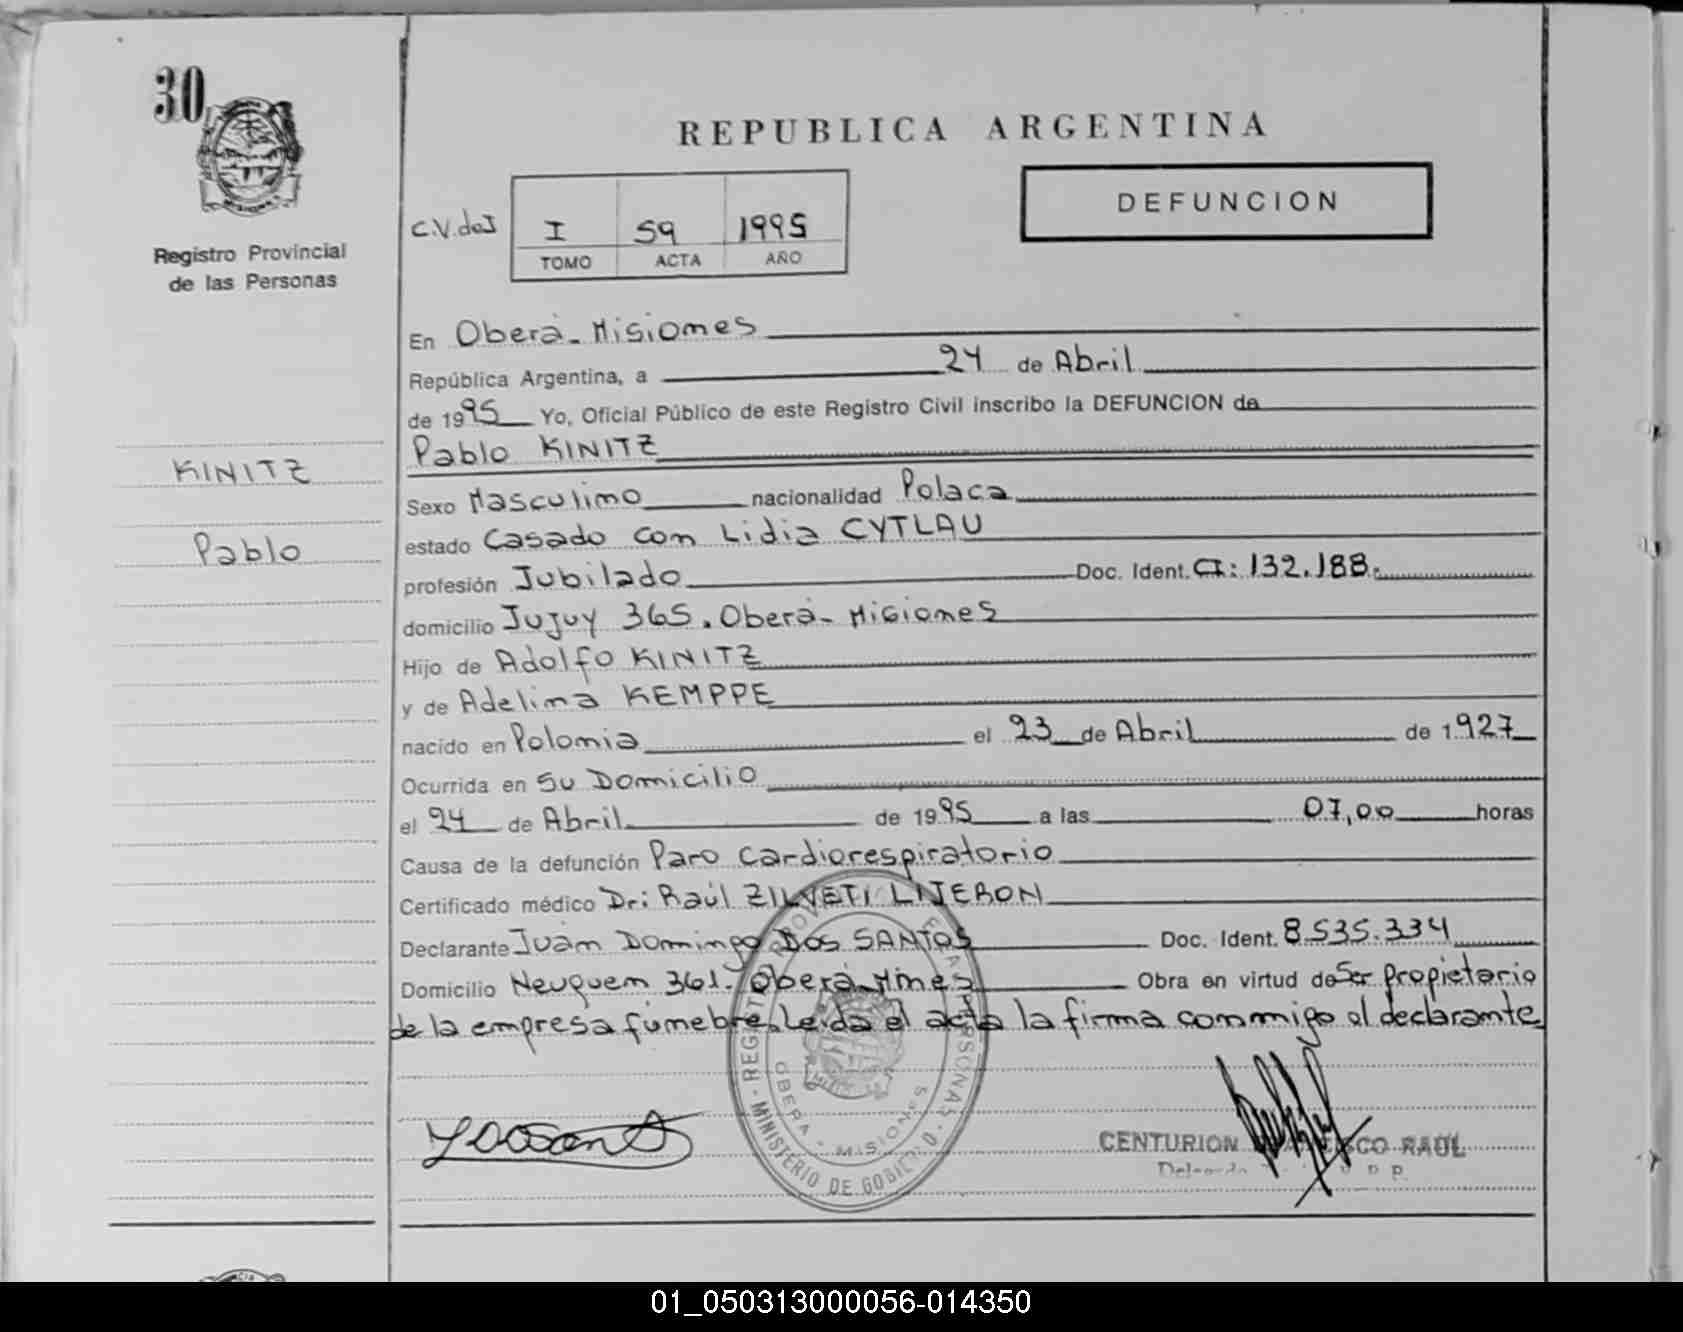 30
Registro Provincial
de las Personas
KINITZ
Pablo
REPUBLICA ARGENTINA
DEFUNCION
C.V.daJ I 59 1995
TOMO ACTA AÑO
En Oberà - Misiones
República Argentina, a 24 de Abril
de 1995 Yo, Oficial Público de este Registro Civil inscribo la DEFUNCION de
Pablo KINITZ
Sexo Masculino nacionalidad Polaca
estado Casado con Lidia CYTLAU
profesión Jubilado Doc. Ident. CI: 132.188.
domicilio Jujuy 365. Oberà - Misiones
Hijo de Adolfo KINITZ
y de Adelina KEMPPE
nacido en Polonia el 23 de Abril de 1927
Ocurrida en Su Domicilio
el 24 de Abril de 1995 a las 07,00 horas
Causa de la defunción Paro cardiorespiratorio
Certificado médico Dr: Raúl ZILVETI LIJERON
Declarante Juan Domingo DOS SANTOS Doc. Ident. 8.535.334
Domicilio Neuquem 361. Oberà - Mnes Obra en virtud de Ser propietario
de la empresa fúnebre. Leida el acta la firma conmigo el declarante
REGISTRO PROVINCIAL DE LAS PERSONAS - MINISTERIO DE GOBIERNO
OBERA - MISIONES
CENTURION FRANCISCO RAUL
Delegado R. P. P.
01_050313000056-014350